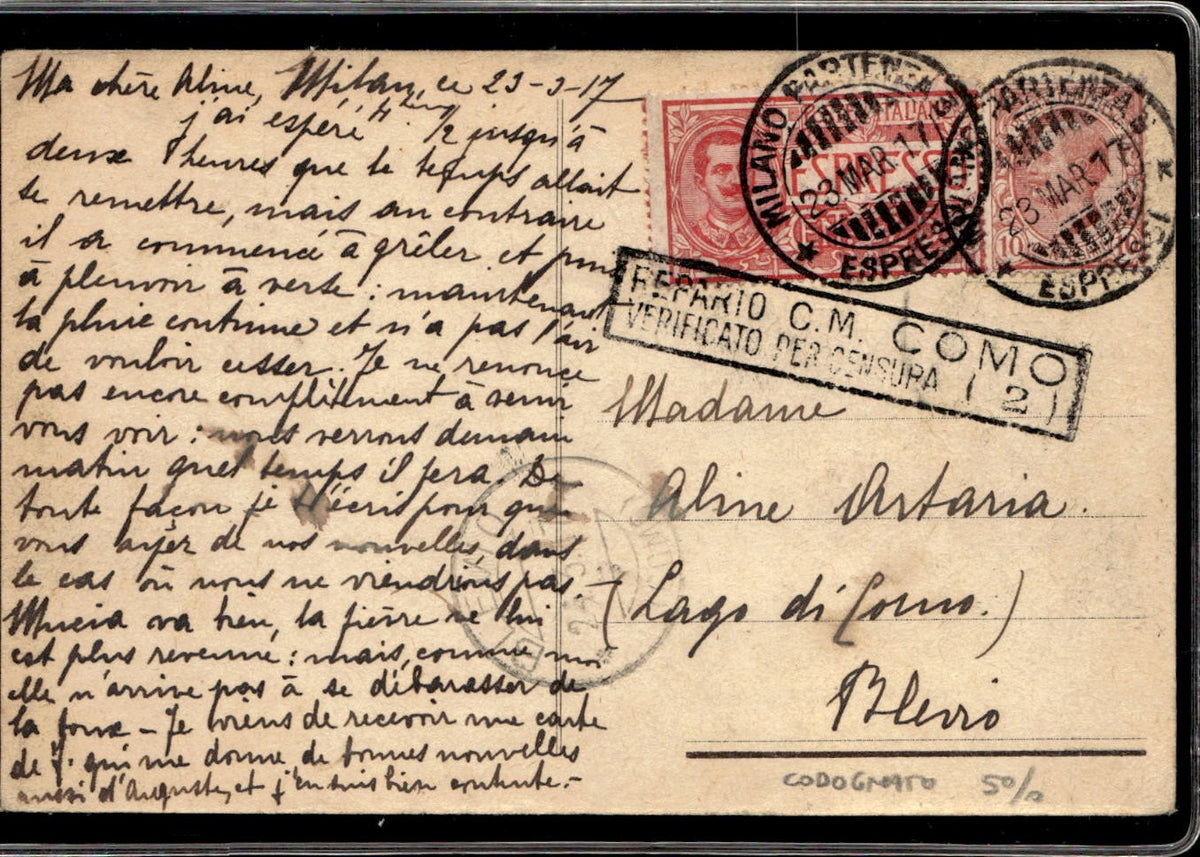 Ma chère Aline, Milan, ce 23-3-17
j'ai espéré jusqu'à
deux heures que le temps allait
se remettre, mais au contraire
il a commencé à grêler et puis
à pleuvoir à verse : maintenant
la pluie continue et n'a pas l'air
de vouloir cesser. Je ne renonce
pas encore complètement à venir
vous voir : nous verrons demain
matin quel temps il fera. De
toute façon je t'écris pour que
vous ayez de nos nouvelles, dans
le cas où nous ne viendrions pas. -
va bien, la fièvre ne lui
est plus revenue : mais, comme moi
elle n'arrive pas à se débarasser de
la toux - Je viens de recevoir une carte
de J. qui me donne de bonnes nouvelles
aussi d'Auguste, et j'en suis bien contente. -
MILANO PARTENZA
23 MAR 17
ESPRESSI
ITALIANE
ESPRESSO
PARTENZA
23 MAR 17
ESPRESSI
10
REPARTO C.M. COMO
VERIFICATO PER CENSURA (2)
Madame
Aline Artaria.
(Lago di Como.)
Blevio
BLEVIO
CODOGNATO 50/0